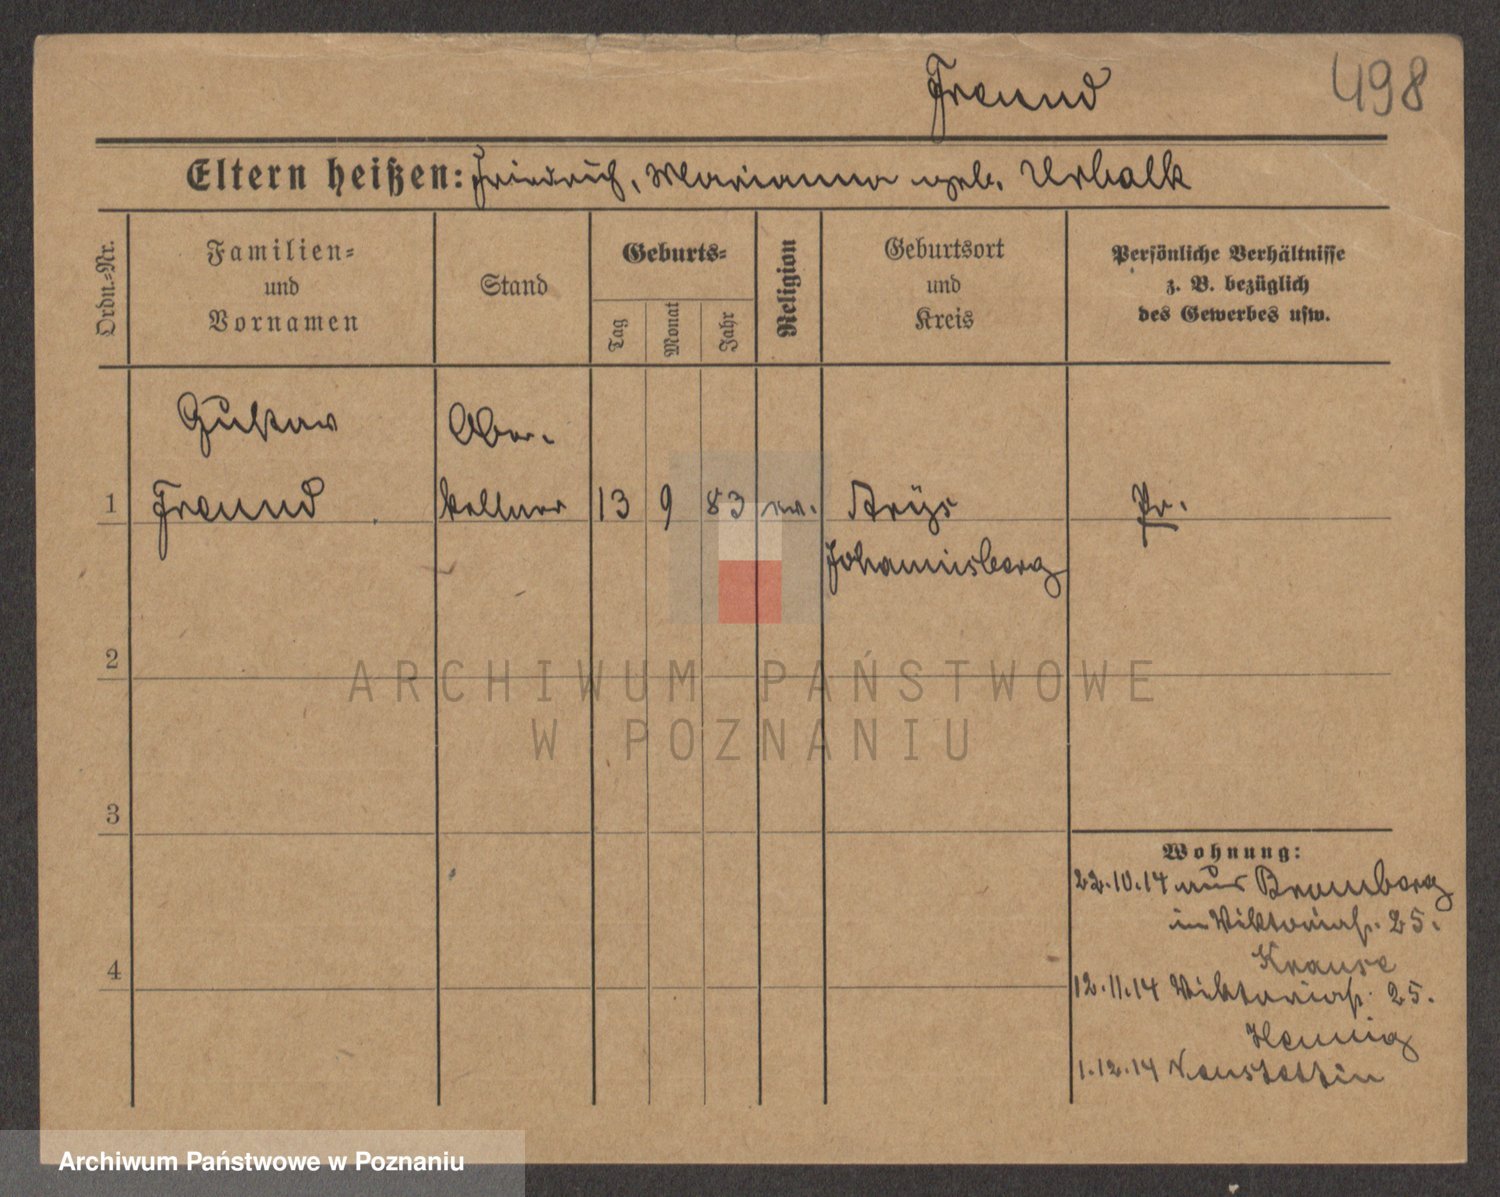 498
Freund
Eltern heißen: Friedrich, Marianna geb. Urbalk
Ordn.=Nr.
Familien=
und
Vornamen
Stand
Geburts=
Tag
Monat
Jahr
Religion
Geburtsort
und
Kreis
Persönliche Verhältnisse
z. B. bezüglich
des Gewerbes usw.
Gustav
Ober-
1 Freund kellner 13 9 83 ev. Arys Pr.
Johannisberg
2
3
4
Wohnung:
22.10.14 aus Bromberg
in Viktoriastr. 25.
Krause
12.11.14 Viktoriastr. 25.
Hennig
1.12.14 Neustettin
ARCHIWUM PAŃSTWOWE
W POZNANIU
Archiwum Państwowe w Poznaniu